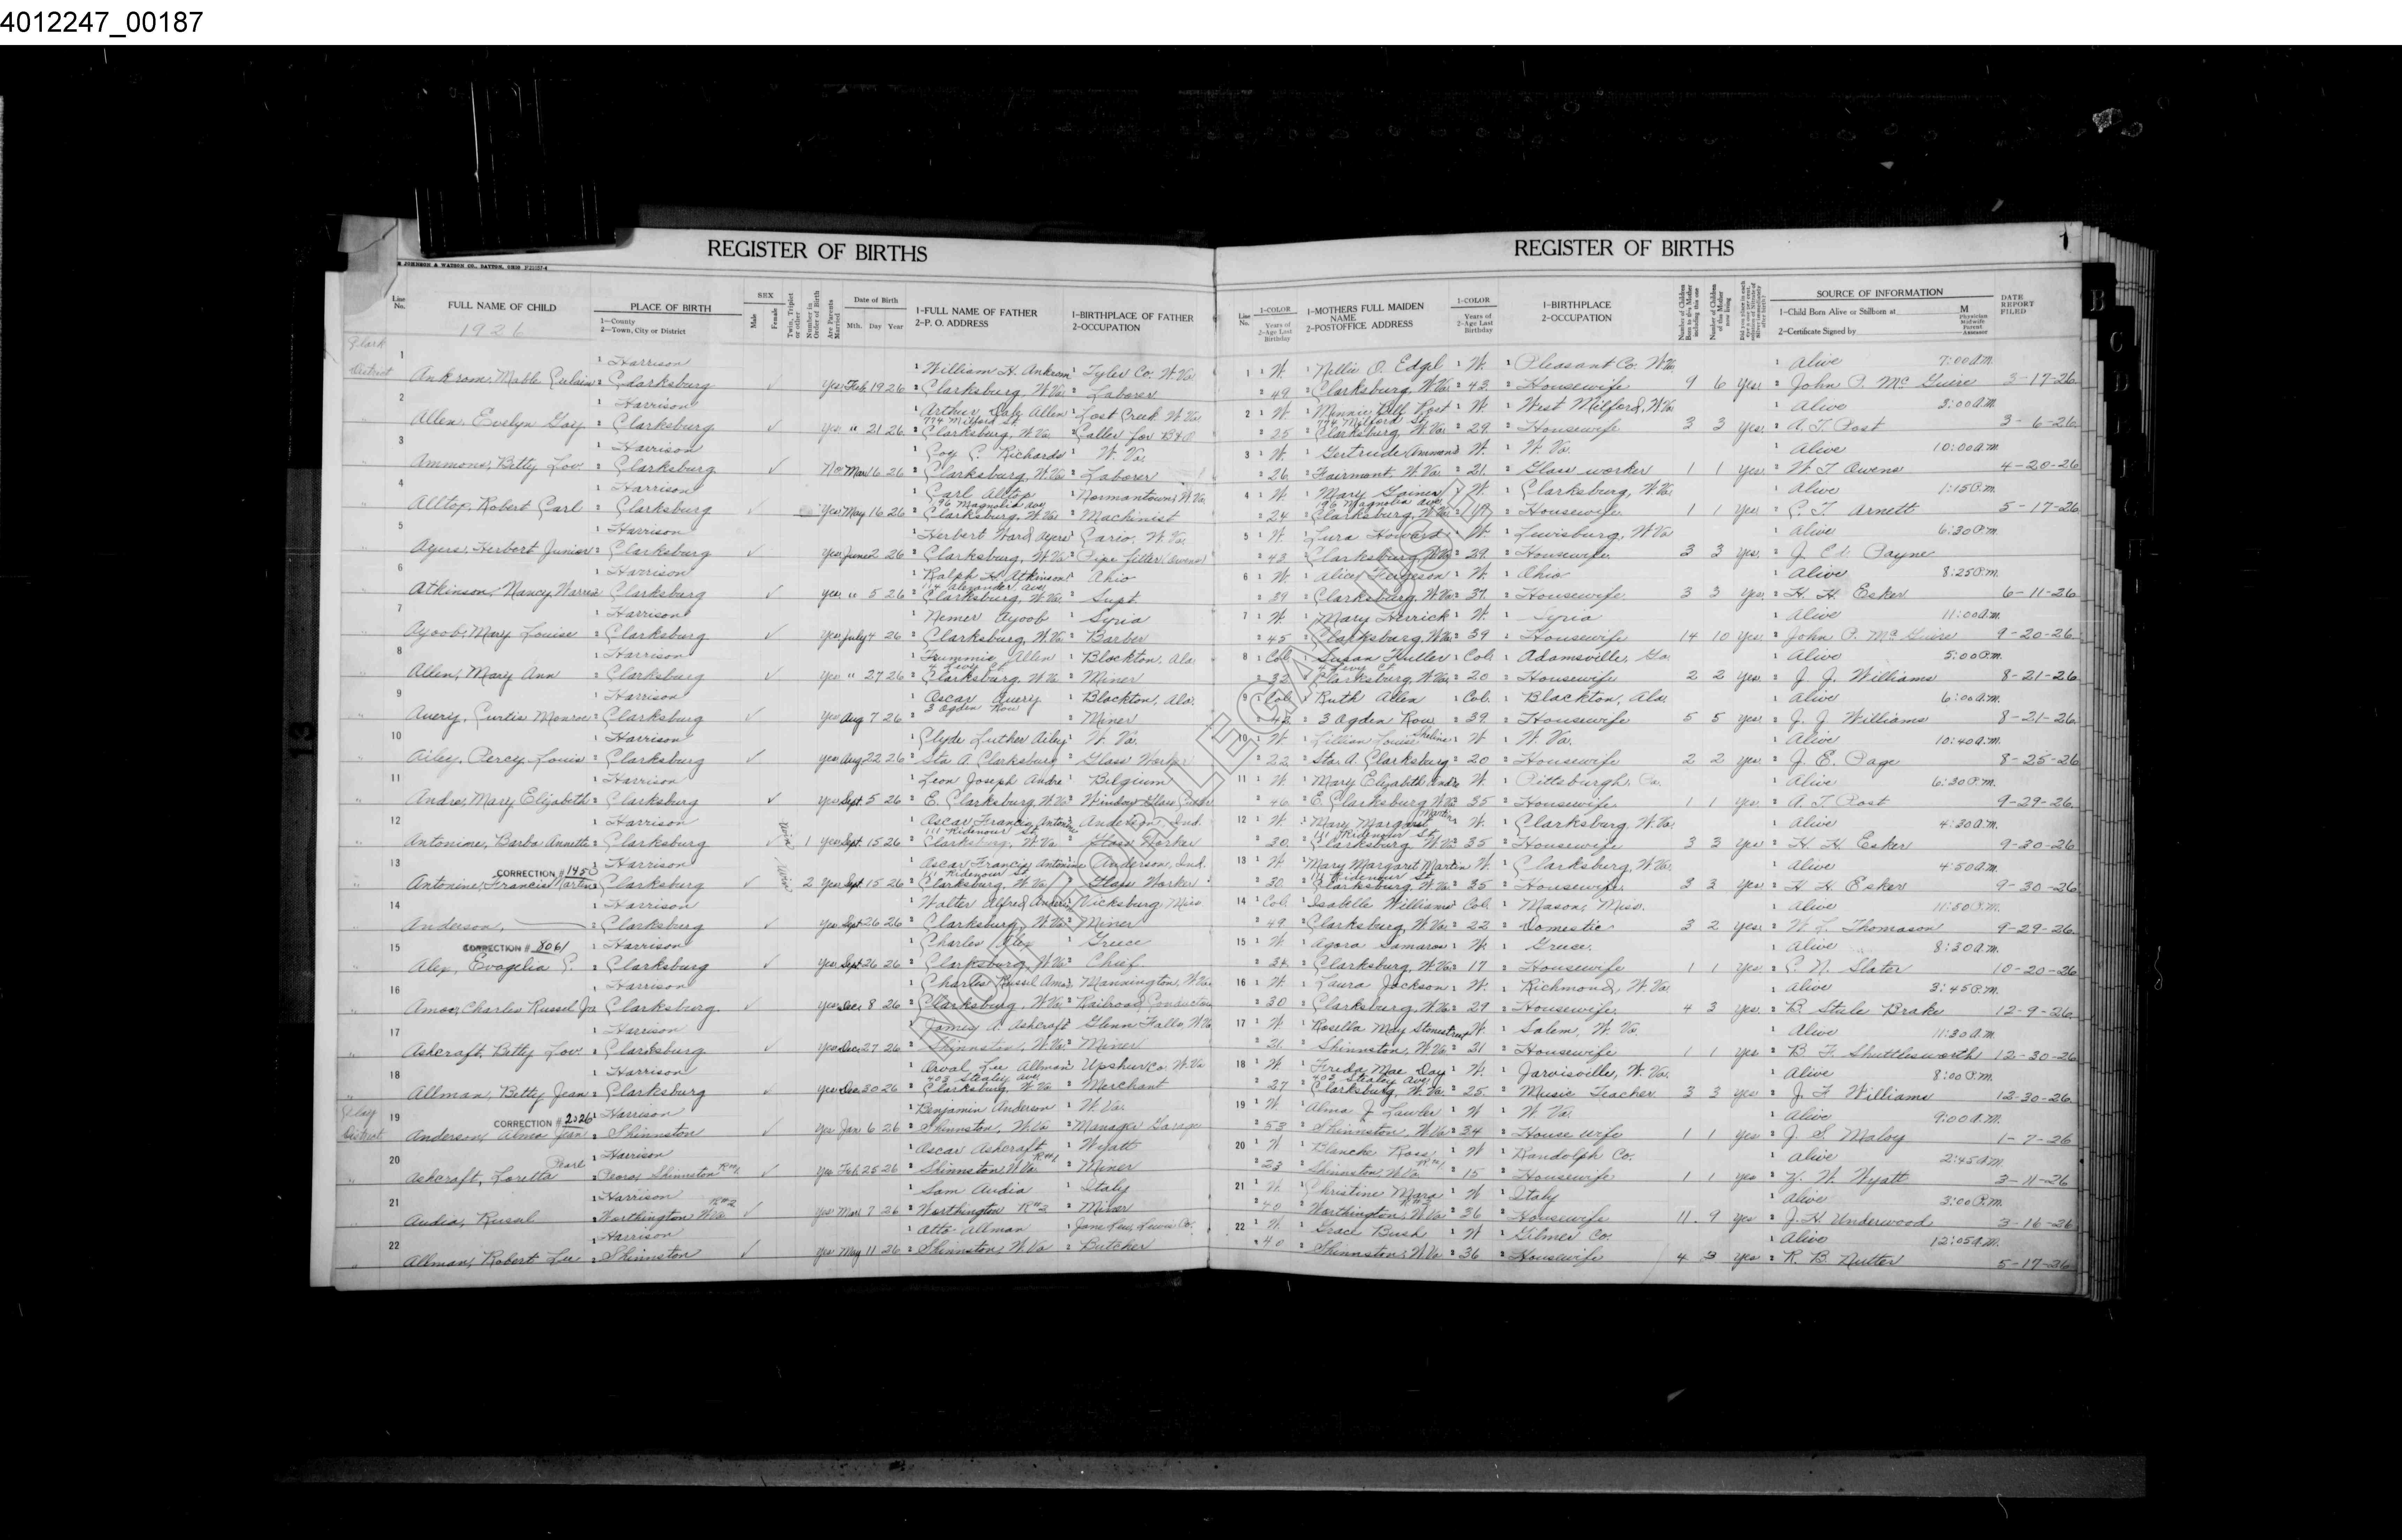 4012247_00187
REGISTER OF BIRTHS
REGISTER OF BIRTHS
1
Line No.
FULL NAME OF CHILD
1926
PLACE OF BIRTH
1—County
2—Town, City or District
SEX
Male
Female
Twin, Triplet or other
Number in Order of Birth
Are Parents Married
Date of Birth
Mth. Day Year
1-FULL NAME OF FATHER
2-P. O. ADDRESS
1-BIRTHPLACE OF FATHER
2-OCCUPATION
Line No.
1-COLOR
Years of
2-Age Last Birthday
1-MOTHERS FULL MAIDEN NAME
2-POSTOFFICE ADDRESS
1-COLOR
Years of
2-Age Last Birthday
1-BIRTHPLACE
2-OCCUPATION
SOURCE OF INFORMATION
1-Child Born Alive or Stillborn at
2-Certificate Signed by
M
Physician
Midwife
Parent
Assessor
DATE REPORT FILED
Clark District
1 Harrison William H. Ankrom Tyler Co. W. Va. 1 W. Nellie O. Edgl W. Pleasant Co. W. Va. Alive 7:00 A.M.
Ankrom, Mable Clarksburg Yes Feb. 19 26 Clarksburg, W. Va. Laborer 49 Clarksburg, W. Va. 43 Housewife 9 6 yes John P. McGuire 3-17-26
2 Harrison Arthur Allen Lost Creek W. Va. 2 W. Minnie Post W. West Milford, W. Va. Alive 3:00 A.M.
774 Milford St. 774 Milford St.
Allen, Evelyn Gay Clarksburg Yes " 21 26 Clarksburg, W. Va. Caller for B&O 25 Clarksburg, W. Va. 29 Housewife 3 3 yes A. T. Post 3-6-26
3 Harrison Coy C. Richards W. Va. 3 W. Gertrude Ammons W. W. Va. Alive 10:00 A.M.
Ammons, Betty Lou Clarksburg No Mar 6 26 Clarksburg, W. Va. Laborer 26 Fairmont, W. Va. 21 Glass worker 1 1 yes W. T. Owens 4-20-26
4 Harrison Carl Alltop Normantown, W. Va. 4 W. Mary Gainer W. Clarksburg, W. Va. Alive 1:15 P.M.
196 Magnolia Ave. 196 Magnolia Ave.
Alltop, Robert Carl Clarksburg Yes May 16 26 Clarksburg, W. Va. Machinist 24 Clarksburg, W. Va. Housewife 1 1 yes C. T. Arnett 5-17-26
5 Harrison Herbert Ward Ayers Cairo, W. Va. 5 W. Lura Howard W. Lewisburg, W. Va. Alive 6:30 P.M.
Ayers, Herbert Junior Clarksburg Yes June 2 26 Clarksburg, W. Va. Pipe fitter, Owens 43 Clarksburg, W. Va. 29 Housewife 3 3 yes J. Payne
6 Harrison Ralph H. Atkinson Ohio 6 W. Alice Ferguson W. Ohio Alive 8:25 P.M.
114 Alexander Ave.
Atkinson, Nancy Warren Clarksburg yes " 5 26 Clarksburg, W. Va. Supt. 39 Clarksburg, W. Va. 37 Housewife 3 3 yes H. H. Esker 6-11-26
7 Harrison Nemer Ayoob Syria 7 W. Mary Herrick W. Syria Alive 11:00 A.M.
Ayoob, Mary Louise Clarksburg Yes July 4 26 Clarksburg, W. Va. Barber 45 Clarksburg, W. Va. 39 Housewife 14 10 yes John P. McGuire 9-20-26
8 Harrison Allen Blockton, Ala. 8 Col. Susan Col. Adamsville, Ga. Alive 5:00 P.M.
4 Levy Ct. 4 Levy Ct.
Allen, Mary Ann Clarksburg Yes " 27 26 Clarksburg, W. Va. Miner 32 Clarksburg, W. Va. 20 Housewife 2 2 yes J. J. Williams 8-21-26
9 Harrison Oscar Avery Blockton, Ala. 9 Col. Ruth Allen Col. Blockton, Ala. Alive 6:00 A.M.
Avery, Curtis Monroe Clarksburg Yes Aug 7 26 3 Ogden Row Miner 42 3 Ogden Row 39 Housewife 5 5 yes J. J. Williams 8-21-26
10 Harrison Clyde Luther Ailey W. Va. 10 W. Lillian Louise W. W. Va. Alive 10:40 A.M.
Ailey, Percy Louis Clarksburg yes Aug 22 26 Sta. A Clarksburg Glass Worker 22 Sta. A. Clarksburg 20 Housewife 2 2 yes J. E. Page 8-25-26
11 Harrison Leon Joseph Andre Belgium 11 W. Mary Elizabeth Andre W. Pittsburgh, Pa. Alive 6:30 P.M.
Andre, Mary Elizabeth Clarksburg yes Sept. 5 26 E. Clarksburg, W. Va. Window Glass Cutter 46 E. Clarksburg W. Va. 35 Housewife 1 1 yes A. T. Post 9-29-26
12 Harrison Oscar Francis Antonine Anderson, Ind. 12 W. Mary Margaret Martin W. Clarksburg, W. Va. Alive 4:30 A.M.
111 Ridenour St. 111 Ridenour St.
Antonine, Barba Annette Clarksburg Twins 1 Yes Sept. 15 26 Clarksburg, W. Va. Glass Worker 30 Clarksburg W. Va. 35 Housewife 3 3 yes H. H. Esker 9-30-26
13 CORRECTION # 1450 Harrison Oscar Francis Antonine Anderson, Ind. 13 W. Mary Margaret Martin W. Clarksburg, W. Va. Alive 4:50 A.M.
111 Ridenour St. 111 Ridenour St.
Antonine, Francis Martin Clarksburg Twins 2 Yes Sept. 15 26 Clarksburg, W. Va. Glass Worker 30 Clarksburg, W. Va. 35 Housewife 3 3 yes H. H. Esker 9-30-26
14 Harrison Walter Alfred Anderson Vicksburg, Miss 14 Col. Isabelle Williams Col. Mason, Miss. Alive 11:50 P.M.
Anderson, Clarksburg yes Sept 26 26 Clarksburg, W. Va. Miner 49 Clarksburg, W. Va. 22 Domestic 3 2 yes Thomason 9-29-26
15 CORRECTION # 8061 Harrison Charles Alex Greece 15 W. Agora Samaras W. Greece. Alive 8:30 A.M.
Alex, Evagelia C. Clarksburg yes Sept 26 26 Clarksburg, W. Va. Chief 34 Clarksburg, W. Va. 17 Housewife 1 1 yes C. N. Slater 10-20-26
16 Harrison Charles Russel Amos Mannington, W. Va. 16 W. Laura Jackson W. Richmond, W. Va. Alive 3:45 P.M.
Amos, Charles Russel Jr. Clarksburg yes Dec. 8 26 Clarksburg, W. Va. Railroad Conductor 30 Clarksburg, W. Va. 29 Housewife 4 3 yes B. Steele Brake 12-9-26
17 Harrison James A. Ashcraft Glenn Falls, W. Va. 17 W. Rosella May Stonestreet W. Salem, W. Va. Alive 11:30 A.M.
Ashcraft, Betty Lou Clarksburg yes Dec 27 26 Shinnston, W. Va. Miner 21 Shinnston, W. Va. 31 Housewife 1 1 yes B. F. Shuttlesworth 12-30-26
18 Harrison Orval Lee Allman Upshur Co. W. Va. 18 W. Freda Mae Day W. Jarvisville, W. Va. Alive 8:00 P.M.
403 Stealey Ave. 403 Stealey Ave.
Allman, Betty Jean Clarksburg yes Dec 30 26 Clarksburg, W. Va. Merchant 27 Clarksburg, W. Va. 25 Music Teacher 3 3 yes J. F. Williams 12-30-26
Clay District
19 CORRECTION # 2326 Harrison Benjamin Anderson W. Va. 19 W. Alma J. Lawler W W. Va. Alive 9:00 A.M.
Anderson, Alma Jean Shinnston Yes Jan 6 26 Shinnston, W. Va. Manager Garage 53 Shinnston, W. Va. 34 House wife 1 1 yes J. S. Maloy 1-7-26
20 Pearl Harrison Oscar Ashcraft Wyatt 20 W Blanche Ross W Randolph Co. Alive 2:45 A.M.
Ashcraft, Loretta Shinnston R#1 yes Feb. 25 26 Shinnston, W. Va. R#1 Miner 23 Shinnston, W. Va. R#1 15 Housewife 1 1 yes W. Wyatt 3-11-26
21 Harrison Sam Audia Italy 21 W. Christine Mara W Italy Alive 3:00 P.M.
Audia, Russel Worthington W. Va. R#2 yes Mar 7 26 Worthington R#2 Miner 40 Worthington, W. Va. R#2 36 Housewife 11 9 yes J. H. Underwood 3-16-26
22 Harrison Otto Allman Jane Lew, Lewis Co. 22 W. Grace Bush W Gilmer Co. Alive 12:05 A.M.
Allman, Robert Lee Shinnston yes May 11 26 Shinnston, W. Va. Butcher 40 Shinnston, W. Va. 36 Housewife 4 3 yes R. B. Nutter 5-17-26
B
C
D
13